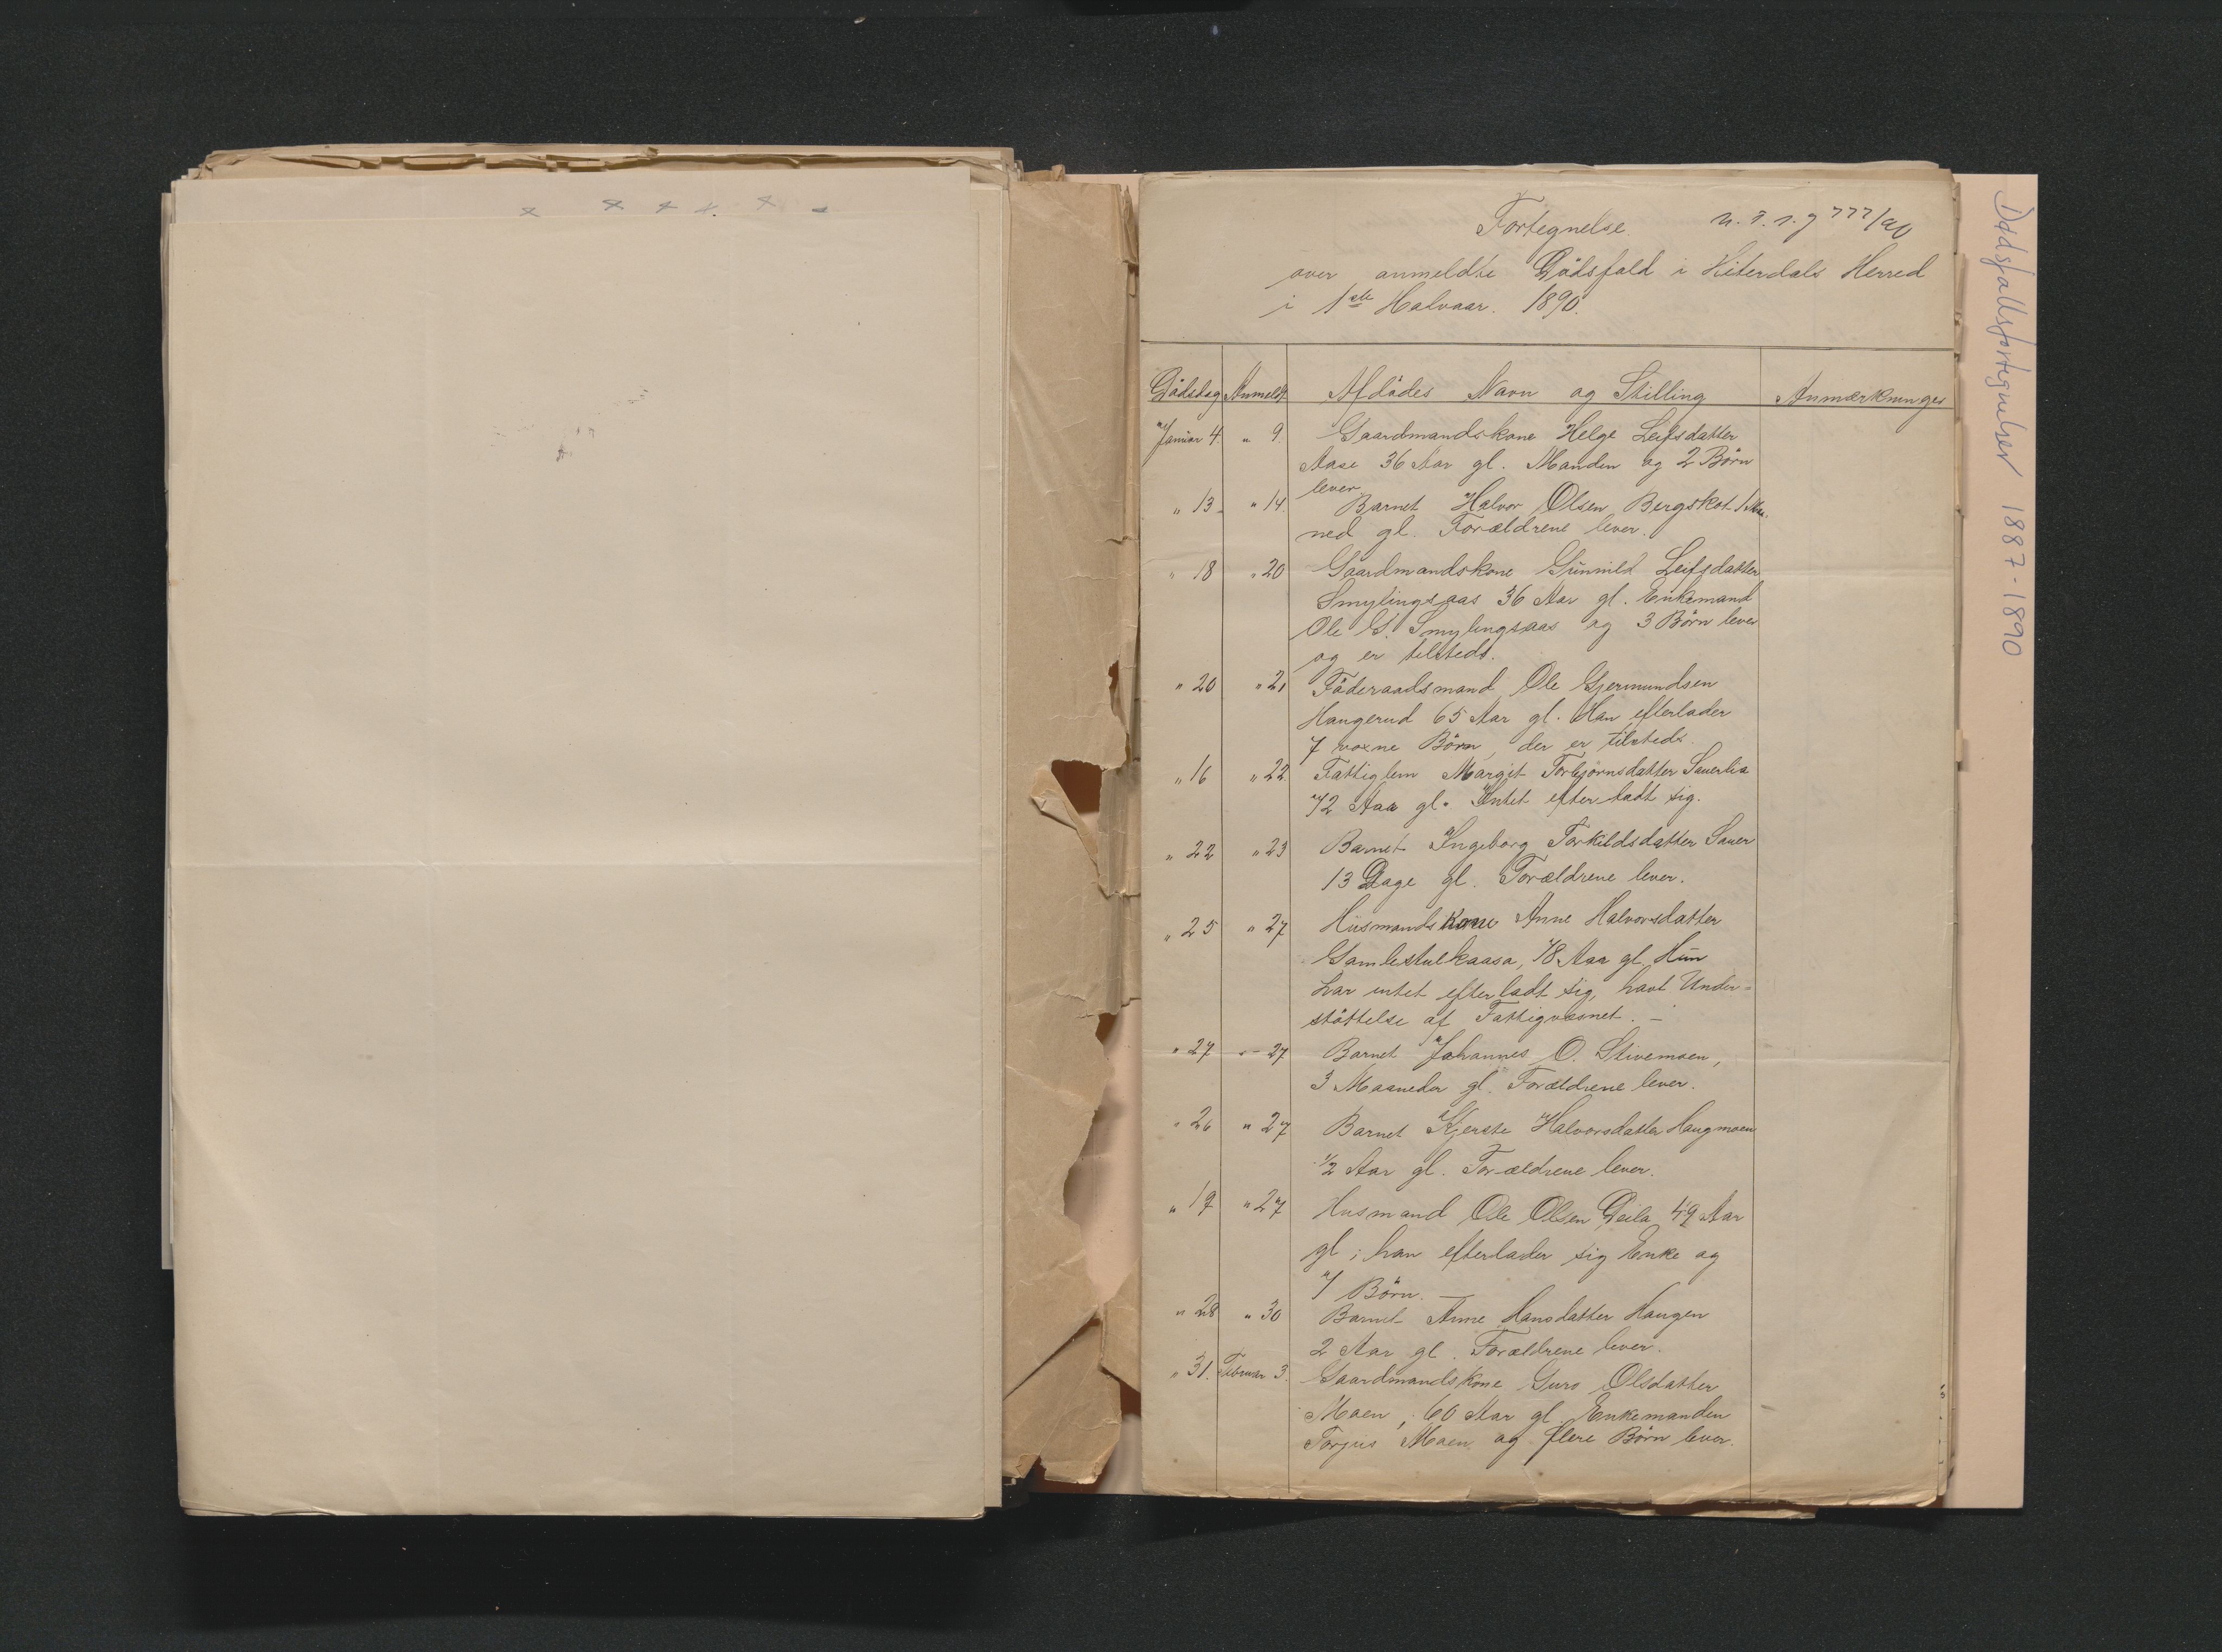 Fortegnelse
over anmeldte Dødsfald i Hiterdals Herred
i 1ste Halvaar. 1890.
Dødsdag Anmeldt Afdødes Navn og Stilling Anmærkninger
Januar 4. " 9. Gaardmandskone Helge Leifsdatter
Aase 36 Aar gl. Manden og 2 Børn
lever
" 13. " 14. Barnet Halvor Olsen Bergskot 1 Maa-
ned gl. Forældrene lever.
" 18 " 20 Gaardmandskone Gunnild Leifsdatter
Smylingsaas 36 Aar gl. Enkemand
Ole G. Smylingsaas og 3 Børn lever
og er tilsteds.
" 20 " 21 Føderaadsmand Ole Gjermundsen
Haugerud 65 Aar gl. Han efterlader
7 voxne Børn, der er tilsteds.
" 16 " 22 Fattiglem Margit Torbjørnsdatter Sauerlia
72 Aar gl. Intet efterladt sig.
" 22 " 23 Barnet Ingeborg Torkildsdatter Sauer
13 Dage gl. Forældrene lever.
" 25 " 27 Husmandskone Anne Halvorsdatter
Gamlestulkaasa, 78 Aar gl. Hun
har intet efterladt sig, havt Under=
støttelse af Fattigvæsnet. —
" 27 " 27 Barnet Johannes O. Stivemoen,
3 Maaneder gl. Forældrene lever.
" 26 " 27 Barnet Kjerste Halvorsdatter Haugmoen
1/2 Aar gl. Forældrene lever.
" 19 " 27 Husmand Ole Olsen Deila 49 Aar
gl; han efterlader sig Enke og
7 Børn. —
" 28 " 30 Barnet Anne Hansdatter Haugen
2 Aar gl. Forældrene lever.
" 31. Februar 3. Gaardmandskone Guro Olsdatter
Moen, 60 Aar gl. Enkemanden
Torjus Moen og flere Børn lever.
Dødsfallsfortegnelser 1887-1890